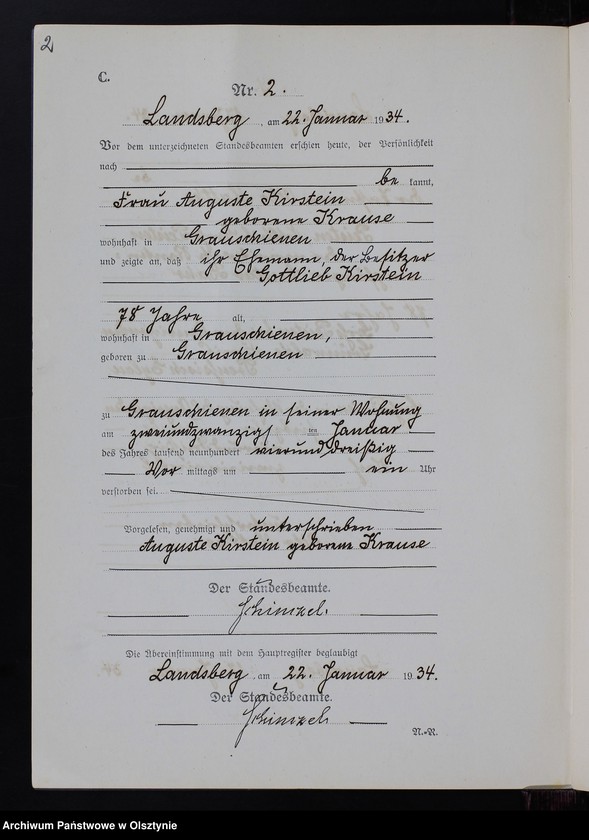 2
C.
Nr. 2.
Landsberg, am 22. Januar 1934.
Vor dem unterzeichneten Standesbeamten erschien heute, der Persönlichkeit
nach
be kannt,
Frau Auguste Kirstein
geborene Krause
wohnhaft in Grauschienen
und zeigte an, daß ihr Ehemann, der Besitzer
Gottlieb Kirstein
78 Jahre alt,
wohnhaft in Grauschienen,
geboren zu Grauschienen
zu Grauschienen in seiner Wohnung
am zweiundzwanzigsten Januar
des Jahres tausend neunhundert vierunddreißig
Vor mittags um ein Uhr
verstorben sei.
Vorgelesen, genehmigt und unterschrieben
Auguste Kirstein geborene Krause
Der Standesbeamte.
Schimzel.
Die Übereinstimmung mit dem Hauptregister beglaubigt
Landsberg, am 22. Januar 1934.
Der Standesbeamte.
Schimzel
N.-R.
Archiwum Państwowe w Olsztynie